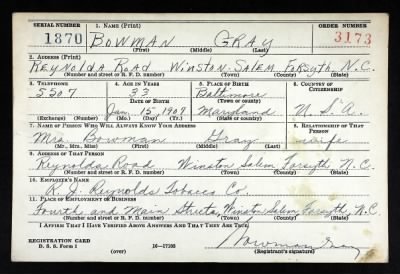 SERIAL NUMBER 1. NAME (Print) ORDER NUMBER
1870 BOWMAN GRAY 3173
(First) (Middle) (Last)
2. ADDRESS (Print)
REYNOLDA ROAD WINSTON-SALEM FORSYTH, N.C.
(Number and street or R. F. D. number) (Town) (County) (State)
3. TELEPHONE 4. AGE IN YEARS 5. PLACE OF BIRTH 6. COUNTRY OF CITIZENSHIP
5507 33 Baltimore
DATE OF BIRTH (Town or county)
Jan 15 1907 Maryland U.S.A.
(Mo.) (Day) (Yr.) (State or country)
7. NAME OF PERSON WHO WILL ALWAYS KNOW YOUR ADDRESS 8. RELATIONSHIP OF THAT PERSON
Mrs. Bowman Gray wife
(Mr., Mrs., Miss) (First) (Middle) (Last)
9. ADDRESS OF THAT PERSON
Reynolda Road Winston Salem Forsyth N.C.
(Number and street or R. F. D. number) (Town) (County) (State)
10. EMPLOYER'S NAME
R. J. Reynolds Tobacco Co.
11. PLACE OF EMPLOYMENT OR BUSINESS
Fourth and Main Streets, Winston Salem, Forsyth, N.C.
(Number and street or R. F. D. number) (Town) (County) (State)
I AFFIRM THAT I HAVE VERIFIED ABOVE ANSWERS AND THAT THEY ARE TRUE.
REGISTRATION CARD
D. S. S. Form 1 (over) 16—17105 Bowman Gray
(Registrant's signature)